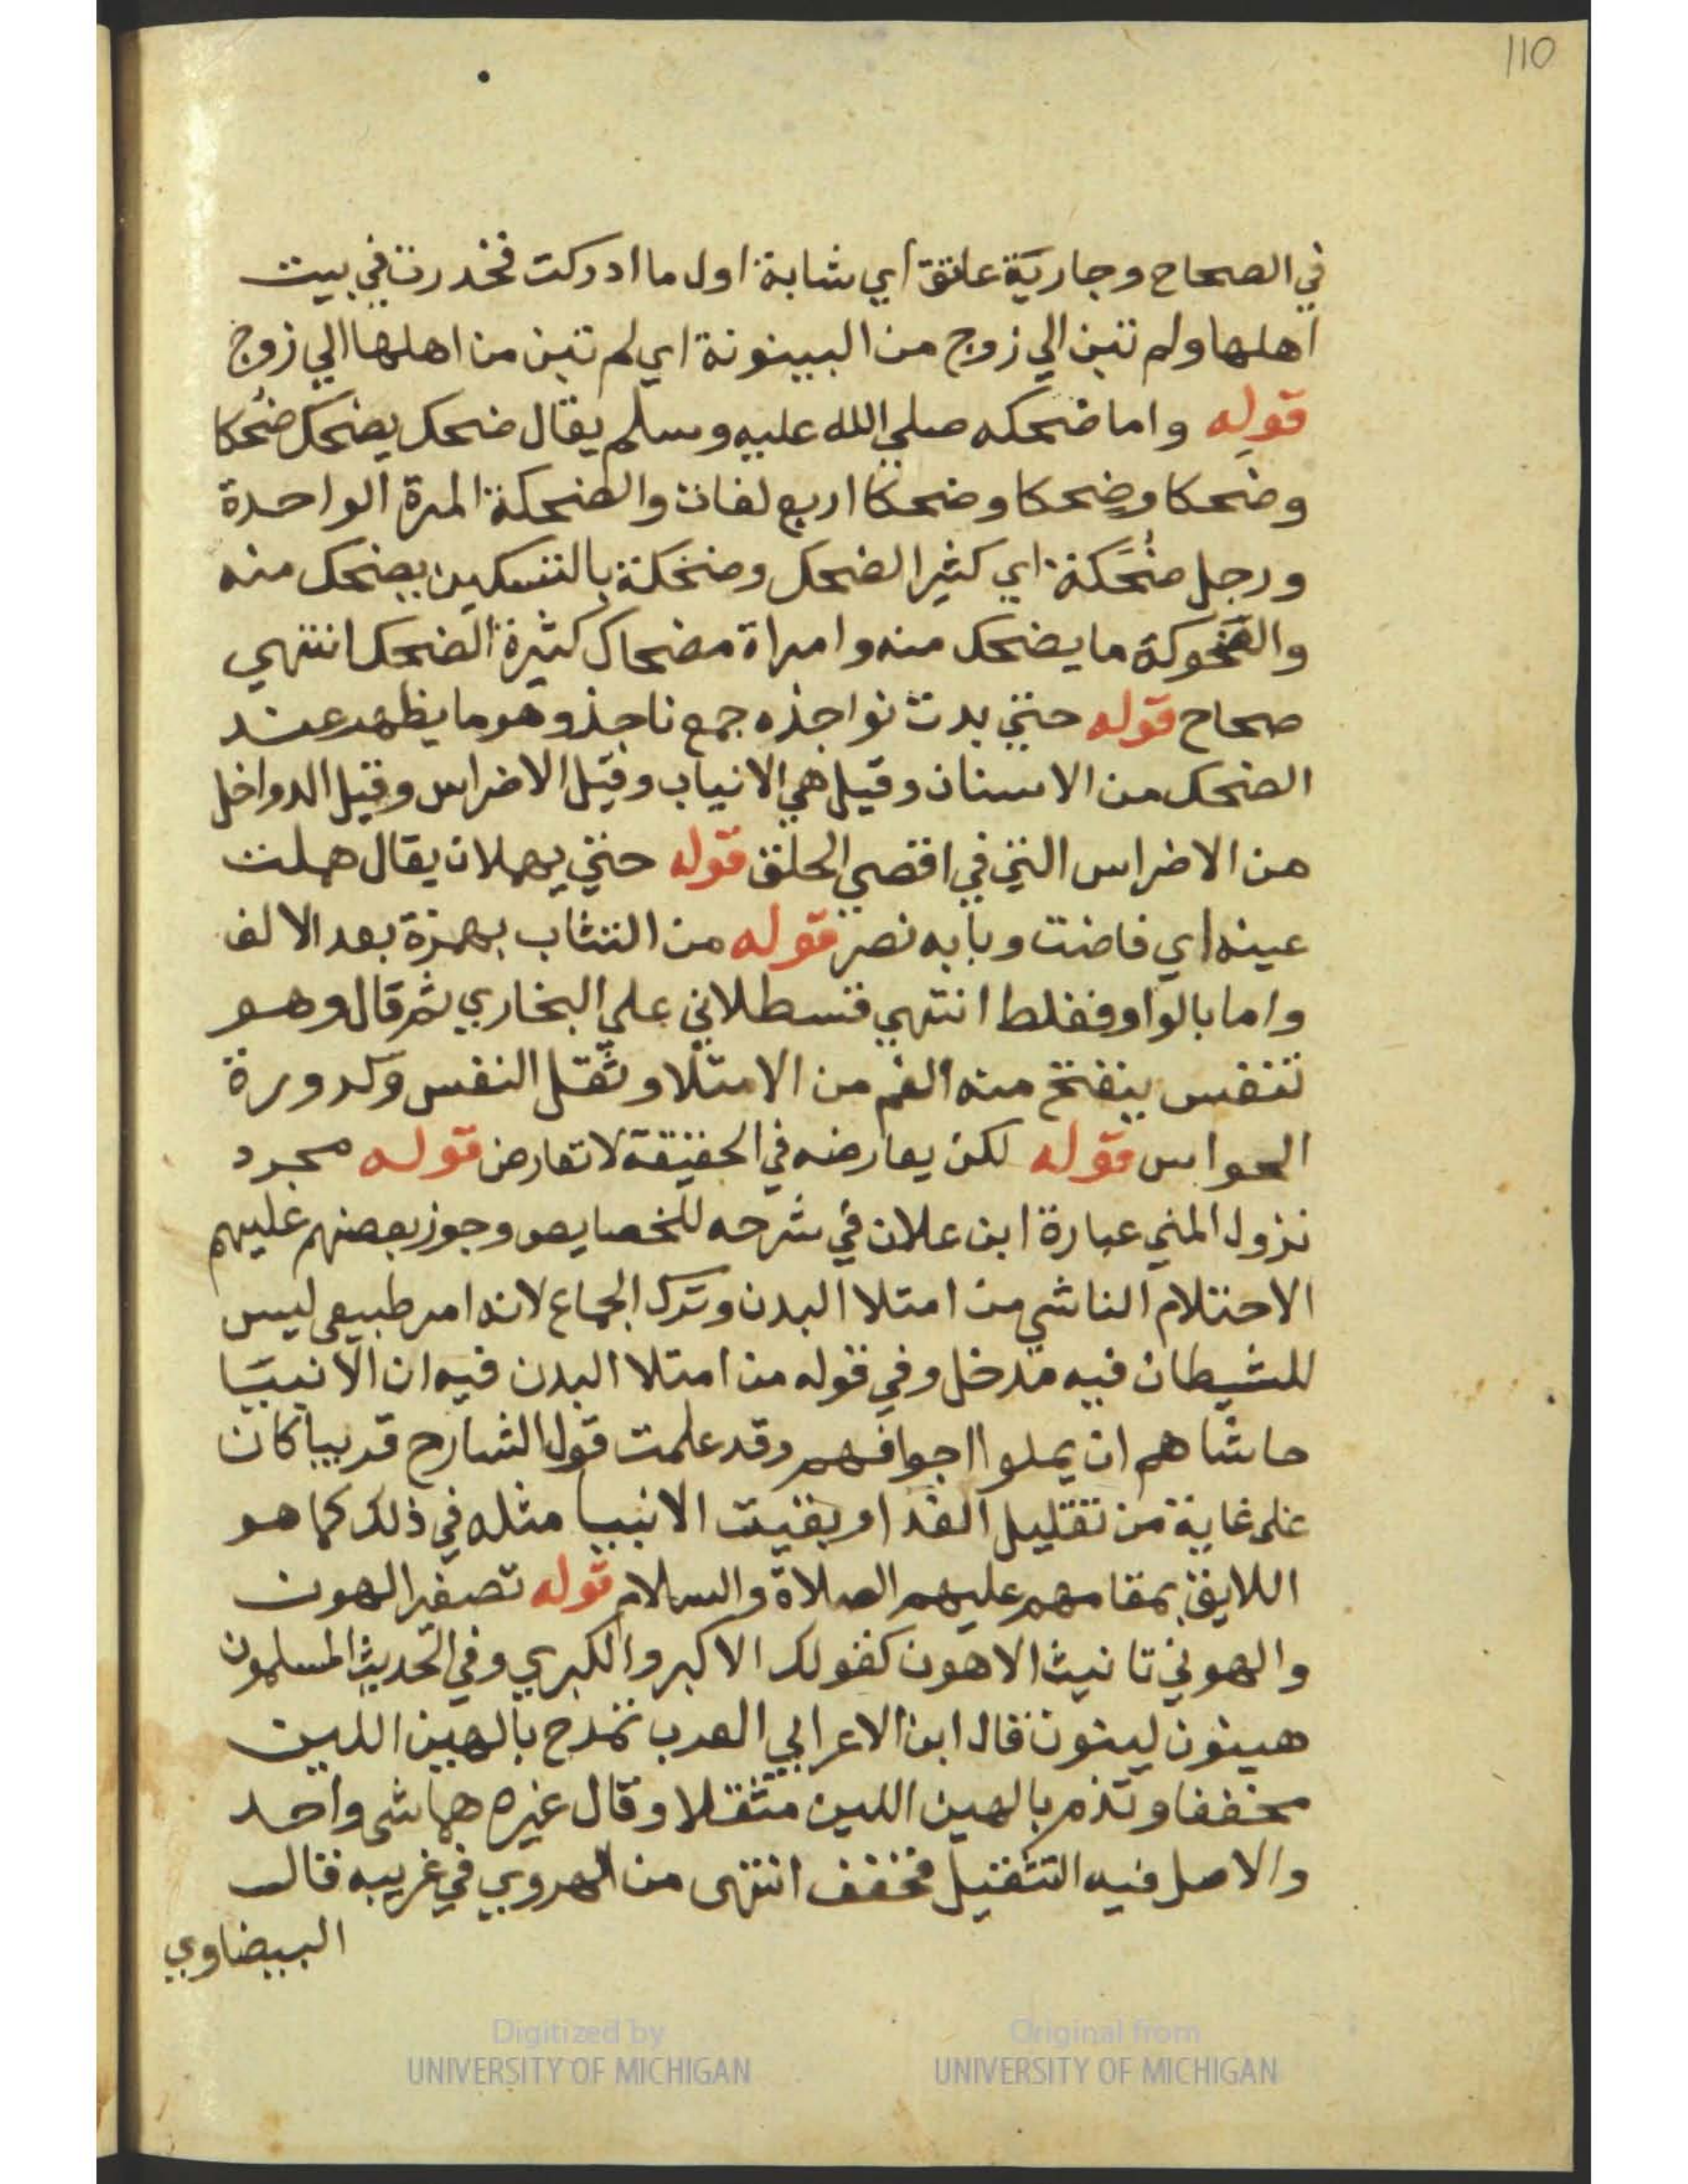 110
في الصحاح وجارية عاتق اي شابة اول ما ادركت فخدرت في بيت
اهلها ولم تبن الي زوج من البينونة اي لم تبن من اهلها الي زوج
قوله واما ضحكه صلي الله عليه وسلم يقال ضحك يضحك ضحكا
وضحكا وضحكا وضحكا اربع لغات والضحكة المرة الواحدة
ورجل ضُحَكة اي كثير الضحك وضحكة بالتسكين يضحك منه
والضحوكة ما يضحك منه وامراة مضحاك كثيرة الضحك انتهي
صحاح قوله حتي بدت نواجذه جمع ناجذ وهو ما يظهر عند
الضحك من الاسنان وقيل هي الانياب وقيل الاضراس وقيل الدواخل
من الاضراس التي في اقصي الحلق قوله حتي يهملان يقال هملت
عينه اي فاضت وبابه نصر قوله من التثاب بهمزة بعد الالف
واما بالواو فغلط انتهي قسطلاني علي البخاري ثم قال وهو
تنفس ينفتح منه الفم من الامتلا وثقل النفس وكدورة
الحواس قوله لكن يعارضه في الحقيقة لا تعارض قوله مجرد
نزول المني عبارة ابن علان في شرحه للخصايص وجوز بعضهم عليهم
الاحتلام الناشي من امتلا البدن وترك الجماع لانه امر طبيعي ليس
للشيطان فيه مدخل وفي قوله من امتلا البدن فيه ان الانبيا
حاشاهم ان يملوا اجوافهم وقد علمت قول الشارح قريبا كان
علي غاية من تقليل الغذا وبقيت الانبيا مثله في ذلك كما هو
اللايق بمقامهم عليهم الصلاة والسلام قوله تصغير الهون
والهوني تانيث الاهون كقولك الاكبر والكبري وفي الحديث المسلمون
هينون لينون قال ابن الاعرابي العرب تمدح بالهين اللين
مخففا وتذم بالهين اللين مثقلا وقال غيره هما شي واحد
والاصل فيه التثقيل فخفف انتهي من الهروي في غريبه قال
البيضاوي
Digitized by
UNIVERSITY OF MICHIGAN
Original from
UNIVERSITY OF MICHIGAN